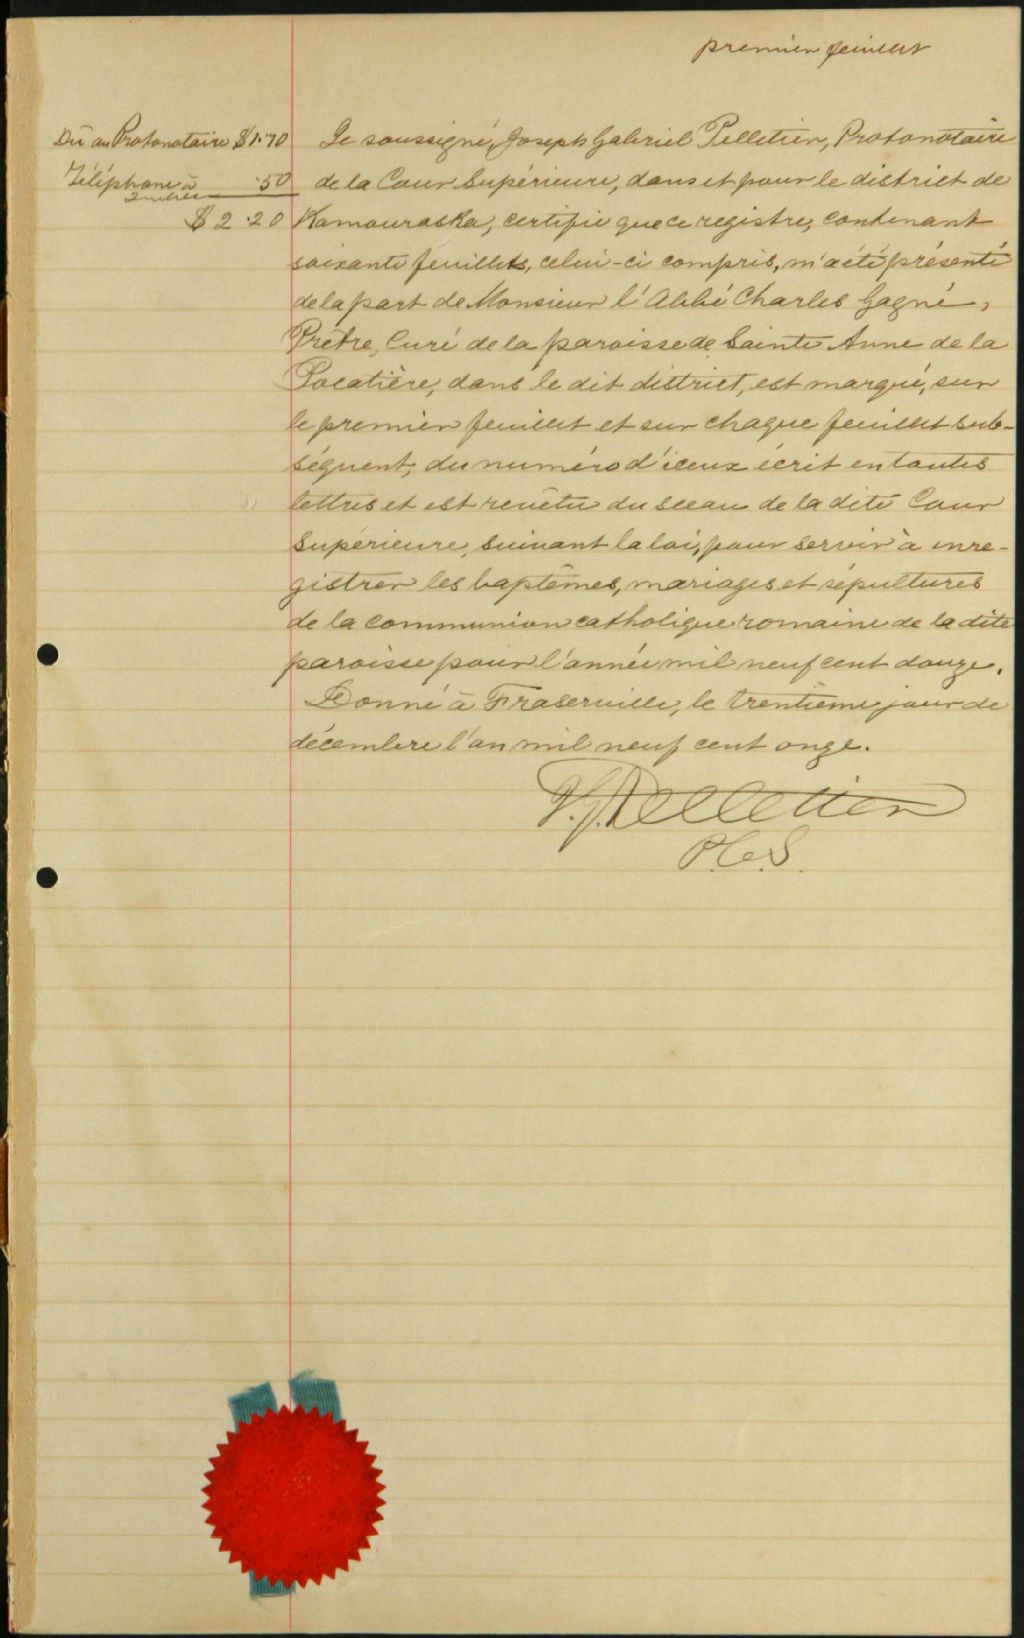 premier feuillet
Dû au Protonotaire $1.70
Téléphone à .50
$2.20
Je soussigné, Joseph Gabriel Pelletier, Protonotaire
de la Cour Supérieure, dans et pour le district de
Kamouraska, certifie que ce registre, contenant
soixante feuillets, celui-ci compris, m'a été présenté
de la part de Monsieur l'Abbé Charles Gagné,
Prêtre, Curé de la paroisse de Sainte Anne de la
Pocatière, dans le dit district, est marqué, sur
le premier feuillet et sur chaque feuillet sub-
séquent, du numéro d'iceux écrit en toutes
lettres et est revêtu du sceau de la dite Cour
Supérieure, suivant la loi, pour servir à enre-
gistrer les baptêmes, mariages et sépultures
de la communion catholique romaine de la dite
paroisse pour l'année mil neuf cent douze.
Donné à Fraserville, le trentième jour de
décembre l'an mil neuf cent onze.
J.G. Pelletier
P.C.S.